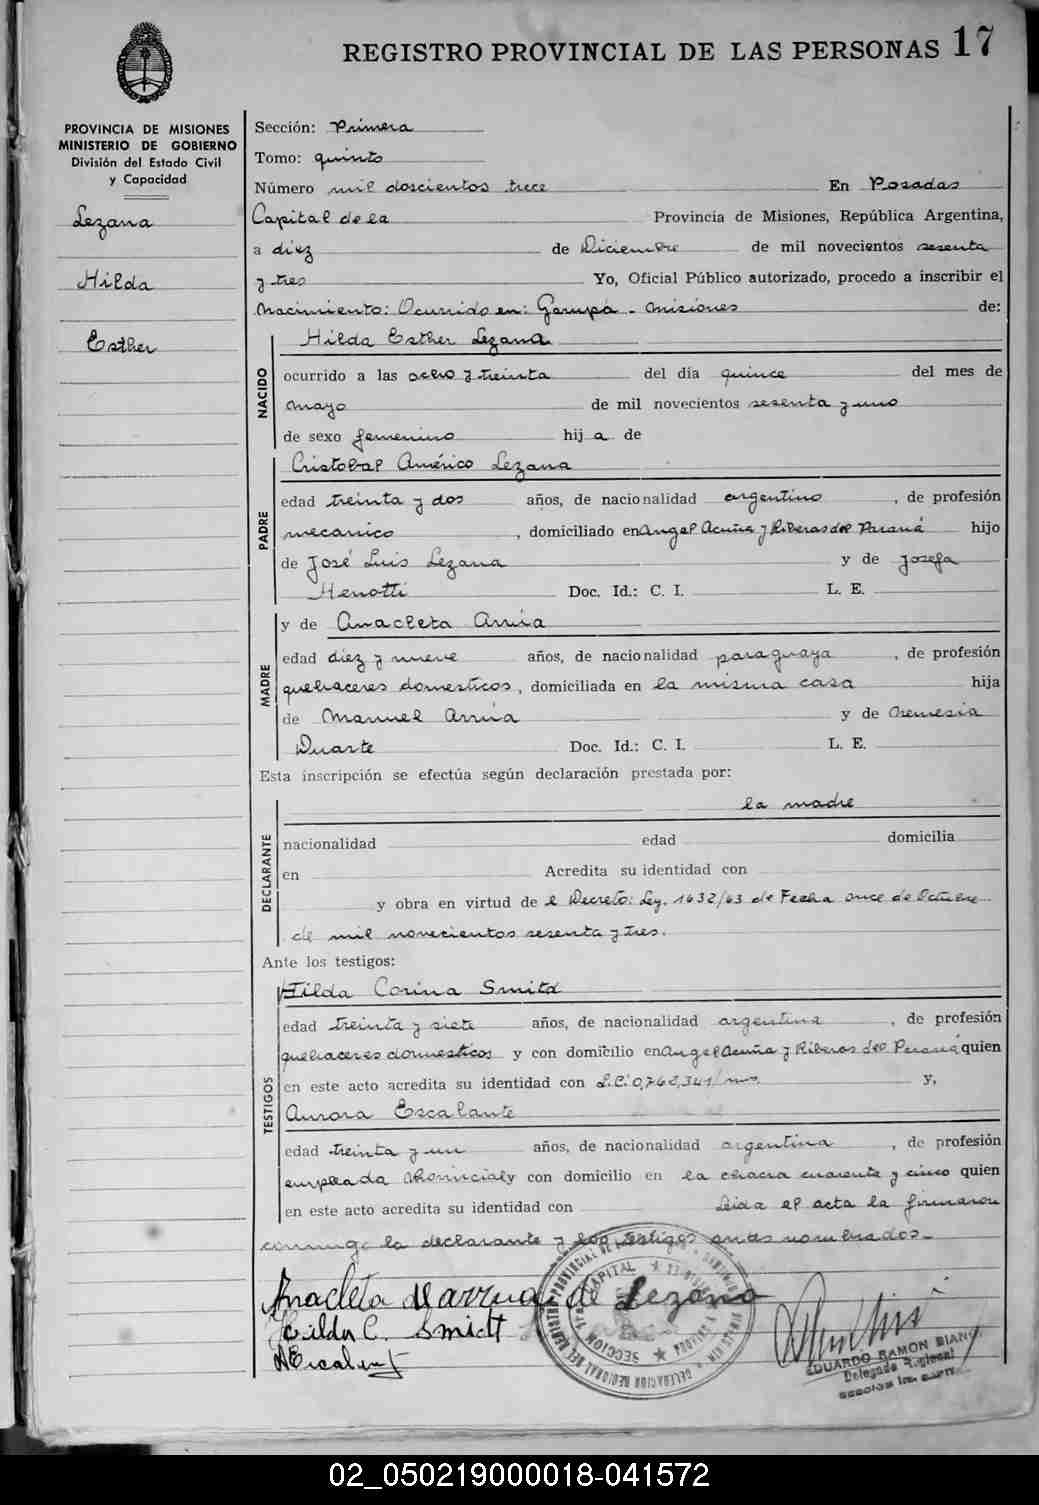 REGISTRO PROVINCIAL DE LAS PERSONAS 17
PROVINCIA DE MISIONES
MINISTERIO DE GOBIERNO
División del Estado Civil
y Capacidad
Lezana
Hilda
Esther
Sección: Primera
Tomo: quinto
Número mil doscientos trece En Posadas
Capital de la Provincia de Misiones, República Argentina,
a diez de Diciembre de mil novecientos sesenta
y tres Yo, Oficial Público autorizado, procedo a inscribir el
Nacimiento: Ocurrido en: Garupá - Misiones de:
NACIDO
Hilda Esther Lezana
ocurrido a las ocho y treinta del día quince del mes de
mayo de mil novecientos sesenta y uno
de sexo femenino hij a de
PADRE
Cristobal Américo Lezana
edad treinta y dos años, de nacionalidad argentino, de profesión
mecanico, domiciliado en Angel Acuña y Riberas del Paraná hijo
de José Luis Lezana y de Josefa
Menotti Doc. Id.: C. I. L. E.
y de Anacleta Arrúa
MADRE
edad diez y nueve años, de nacionalidad paraguaya, de profesión
quehaceres domesticos, domiciliada en la misma casa hija
de Manuel Arrúa y de
Duarte Doc. Id.: C. I. L. E.
Esta inscripción se efectúa según declaración prestada por:
la madre
DECLARANTE
nacionalidad edad domicilia
en Acredita su identidad con
y obra en virtud de l Decreto: Ley. 1632/63 de Fecha once de Octubre
de mil novecientos sesenta y tres.
Ante los testigos:
TESTIGOS
Hilda Corina Smitd
edad treinta y siete años, de nacionalidad argentina, de profesión
quehaceres domesticos y con domicilio en Angel Acuña y Riberas del Paraná quien
en este acto acredita su identidad con y,
Aurora Escalante
edad treinta y un años, de nacionalidad argentina, de profesión
empleada Provincial y con domicilio en la chacra cuarenta y cinco quien
en este acto acredita su identidad con Leida el acta la firmaron
conmigo la declarante y los testigos antes nombrados.-
Anacleta de Arrua de Lezana
Hilda C. Smidt
AEscalante
EDUARDO RAMON BIANC
Delegado Regional
SECCION 1ra. CAPITAL
02_050219000018-041572